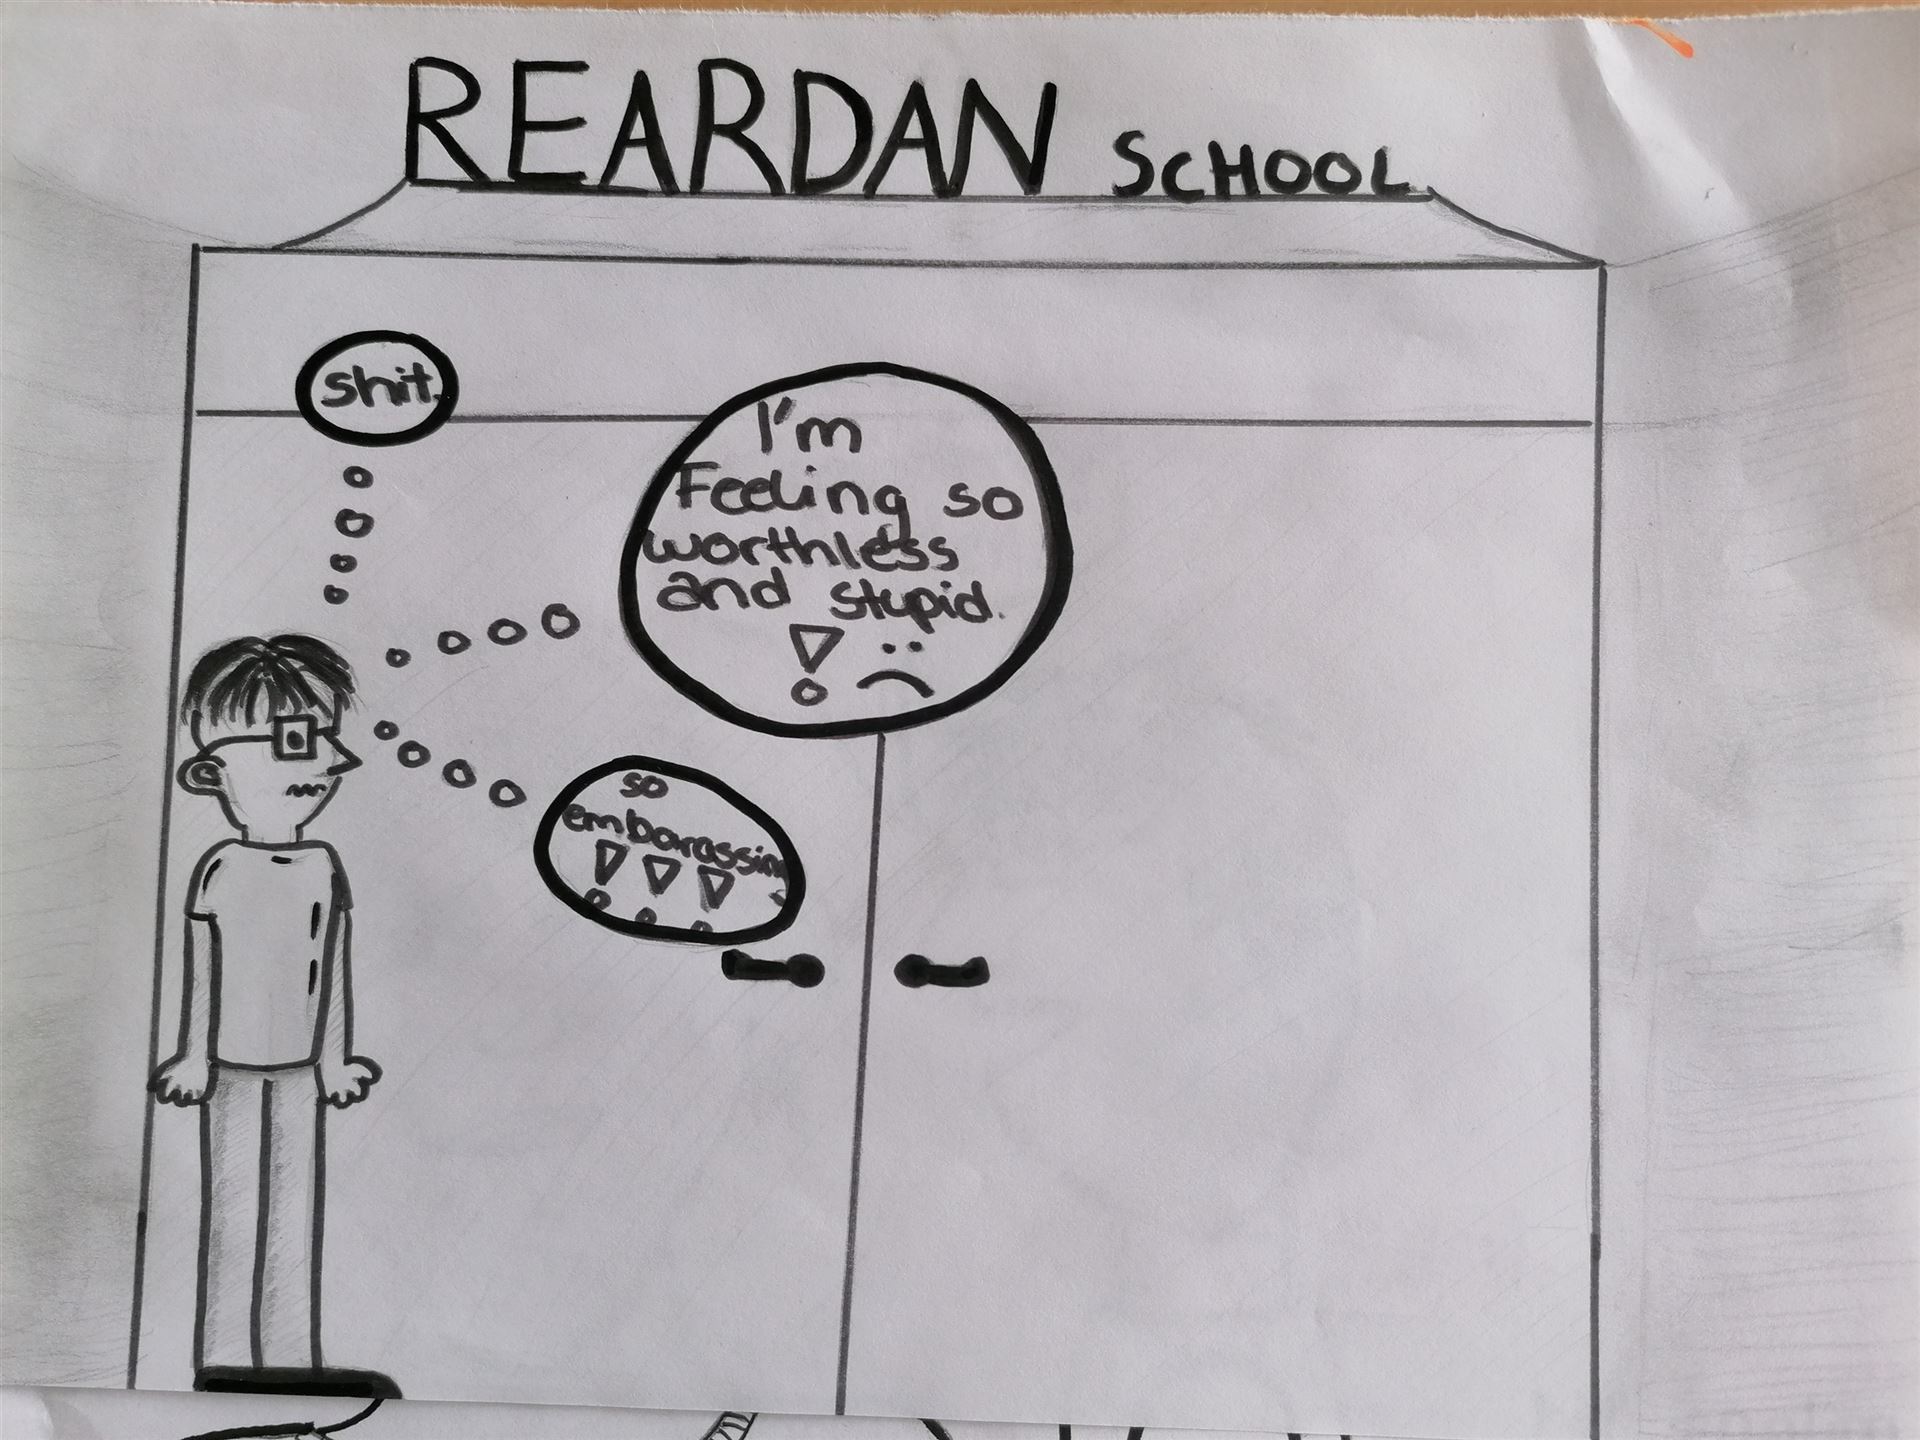 REARDAN SCHOOL
shit.
I'm
Feeling so
worthless
and stupid.
!
so
embarassing
!!!